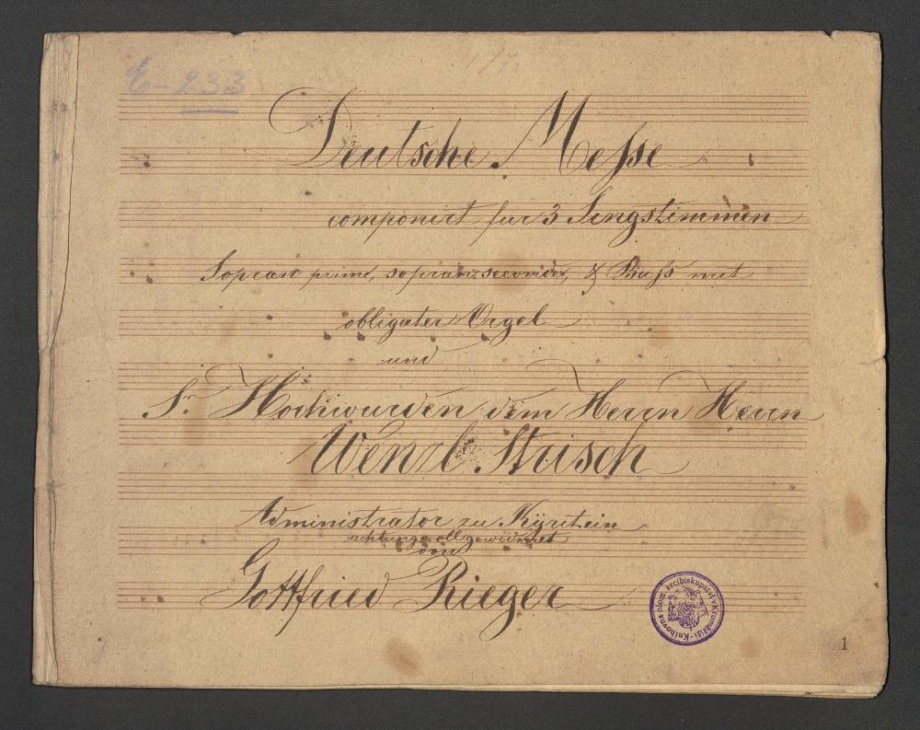 E-233
Deutsche Messe
componirt fur 3 Singstimmen
Sopran primo, sopran secondo, & Bass mit
obligater Orgel
und
Sr Hochwurden dem Herrn Herrn
Wenzl Strisch
Administrator zu Kyritein
achtungsvoll gewidmet
von
Gottfried Rieger
Knihovna olom. arcibiskupství v Kroměříži
1